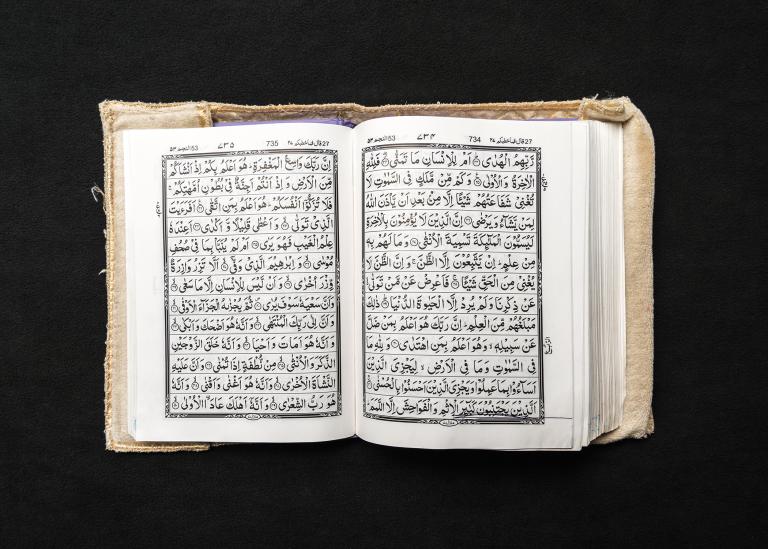 27قال فماخطبكم ۲۷ 734 ۷۳۴ 53النجم ۵۳
رَّبِّهِمُ الْهُدٰى ۟ اَمْ لِلْاِنْسَانِ مَا تَمَنّٰى ۟ فَلِلّٰهِ
الْاٰخِرَةُ وَالْاُوْلٰى ۟ وَكَمْ مِّنْ مَّلَكٍ فِى السَّمٰوٰتِ لَا
تُغْنِىْ شَفَاعَتُهُمْ شَيْئًا اِلَّا مِنْۢ بَعْدِ اَنْ يَّاْذَنَ اللّٰهُ
لِمَنْ يَّشَآءُ وَيَرْضٰى ۟ اِنَّ الَّذِيْنَ لَا يُؤْمِنُوْنَ بِالْاٰخِرَةِ
لَيُسَمُّوْنَ الْمَلٰٓئِكَةَ تَسْمِيَةَ الْاُنْثٰى ۟ وَمَا لَهُمْ بِهٖ
مِنْ عِلْمٍ ؕ اِنْ يَّتَّبِعُوْنَ اِلَّا الظَّنَّ ۚ وَاِنَّ الظَّنَّ لَا
يُغْنِىْ مِنَ الْحَقِّ شَيْئًا ۟ فَاَعْرِضْ عَنْ مَّنْ تَوَلّٰى
عَنْ ذِكْرِنَا وَلَمْ يُرِدْ اِلَّا الْحَيٰوةَ الدُّنْيَا ۟ ذٰلِكَ
مَبْلَغُهُمْ مِّنَ الْعِلْمِ ؕ اِنَّ رَبَّكَ هُوَ اَعْلَمُ بِمَنْ ضَلَّ
عَنْ سَبِيْلِهٖ ۙ وَهُوَ اَعْلَمُ بِمَنِ اهْتَدٰى ۟ وَلِلّٰهِ مَا
فِى السَّمٰوٰتِ وَمَا فِى الْاَرْضِ ۙ لِيَجْزِىَ الَّذِيْنَ
اَسَآءُوْا بِمَا عَمِلُوْا وَيَجْزِىَ الَّذِيْنَ اَحْسَنُوْا بِالْحُسْنٰى ۟
اَلَّذِيْنَ يَجْتَنِبُوْنَ كَبٰٓئِرَ الْاِثْمِ وَالْفَوَاحِشَ اِلَّا اللَّمَمَ ؕ
27قال فماخطبكم ۲۷ 735 ۷۳۵ 53النجم ۵۳
اِنَّ رَبَّكَ وَاسِعُ الْمَغْفِرَةِ ؕ هُوَ اَعْلَمُ بِكُمْ اِذْ اَنْشَاَكُمْ
مِّنَ الْاَرْضِ وَاِذْ اَنْتُمْ اَجِنَّةٌ فِىْ بُطُوْنِ اُمَّهٰتِكُمْ ۚ
فَلَا تُزَكُّوْۤا اَنْفُسَكُمْ ؕ هُوَ اَعْلَمُ بِمَنِ اتَّقٰى ۟ اَفَرَءَيْتَ
الَّذِىْ تَوَلّٰى ۟ وَاَعْطٰى قَلِيْلًا وَّاَكْدٰى ۟ اَعِنْدَهٗ
عِلْمُ الْغَيْبِ فَهُوَ يَرٰى ۟ اَمْ لَمْ يُنَبَّاْ بِمَا فِىْ صُحُفِ
مُوْسٰى ۟ وَاِبْرٰهِيْمَ الَّذِىْ وَفّٰٓى ۟ اَلَّا تَزِرُ وَازِرَةٌ
وِّزْرَ اُخْرٰى ۟ وَاَنْ لَّيْسَ لِلْاِنْسَانِ اِلَّا مَا سَعٰى ۟
وَاَنَّ سَعْيَهٗ سَوْفَ يُرٰى ۟ ثُمَّ يُجْزٰىهُ الْجَزَآءَ الْاَوْفٰى ۟
وَاَنَّ اِلٰى رَبِّكَ الْمُنْتَهٰى ۟ وَاَنَّهٗ هُوَ اَضْحَكَ وَاَبْكٰى ۟
وَاَنَّهٗ هُوَ اَمَاتَ وَاَحْيَا ۟ وَاَنَّهٗ خَلَقَ الزَّوْجَيْنِ
الذَّكَرَ وَالْاُنْثٰى ۟ مِنْ نُّطْفَةٍ اِذَا تُمْنٰى ۟ وَاَنَّ عَلَيْهِ
النَّشْاَةَ الْاُخْرٰى ۟ وَاَنَّهٗ هُوَ اَغْنٰى وَاَقْنٰى ۟ وَاَنَّهٗ
هُوَ رَبُّ الشِّعْرٰى ۟ وَاَنَّهٗۤ اَهْلَكَ عَادَا ۨالْاُوْلٰى ۟